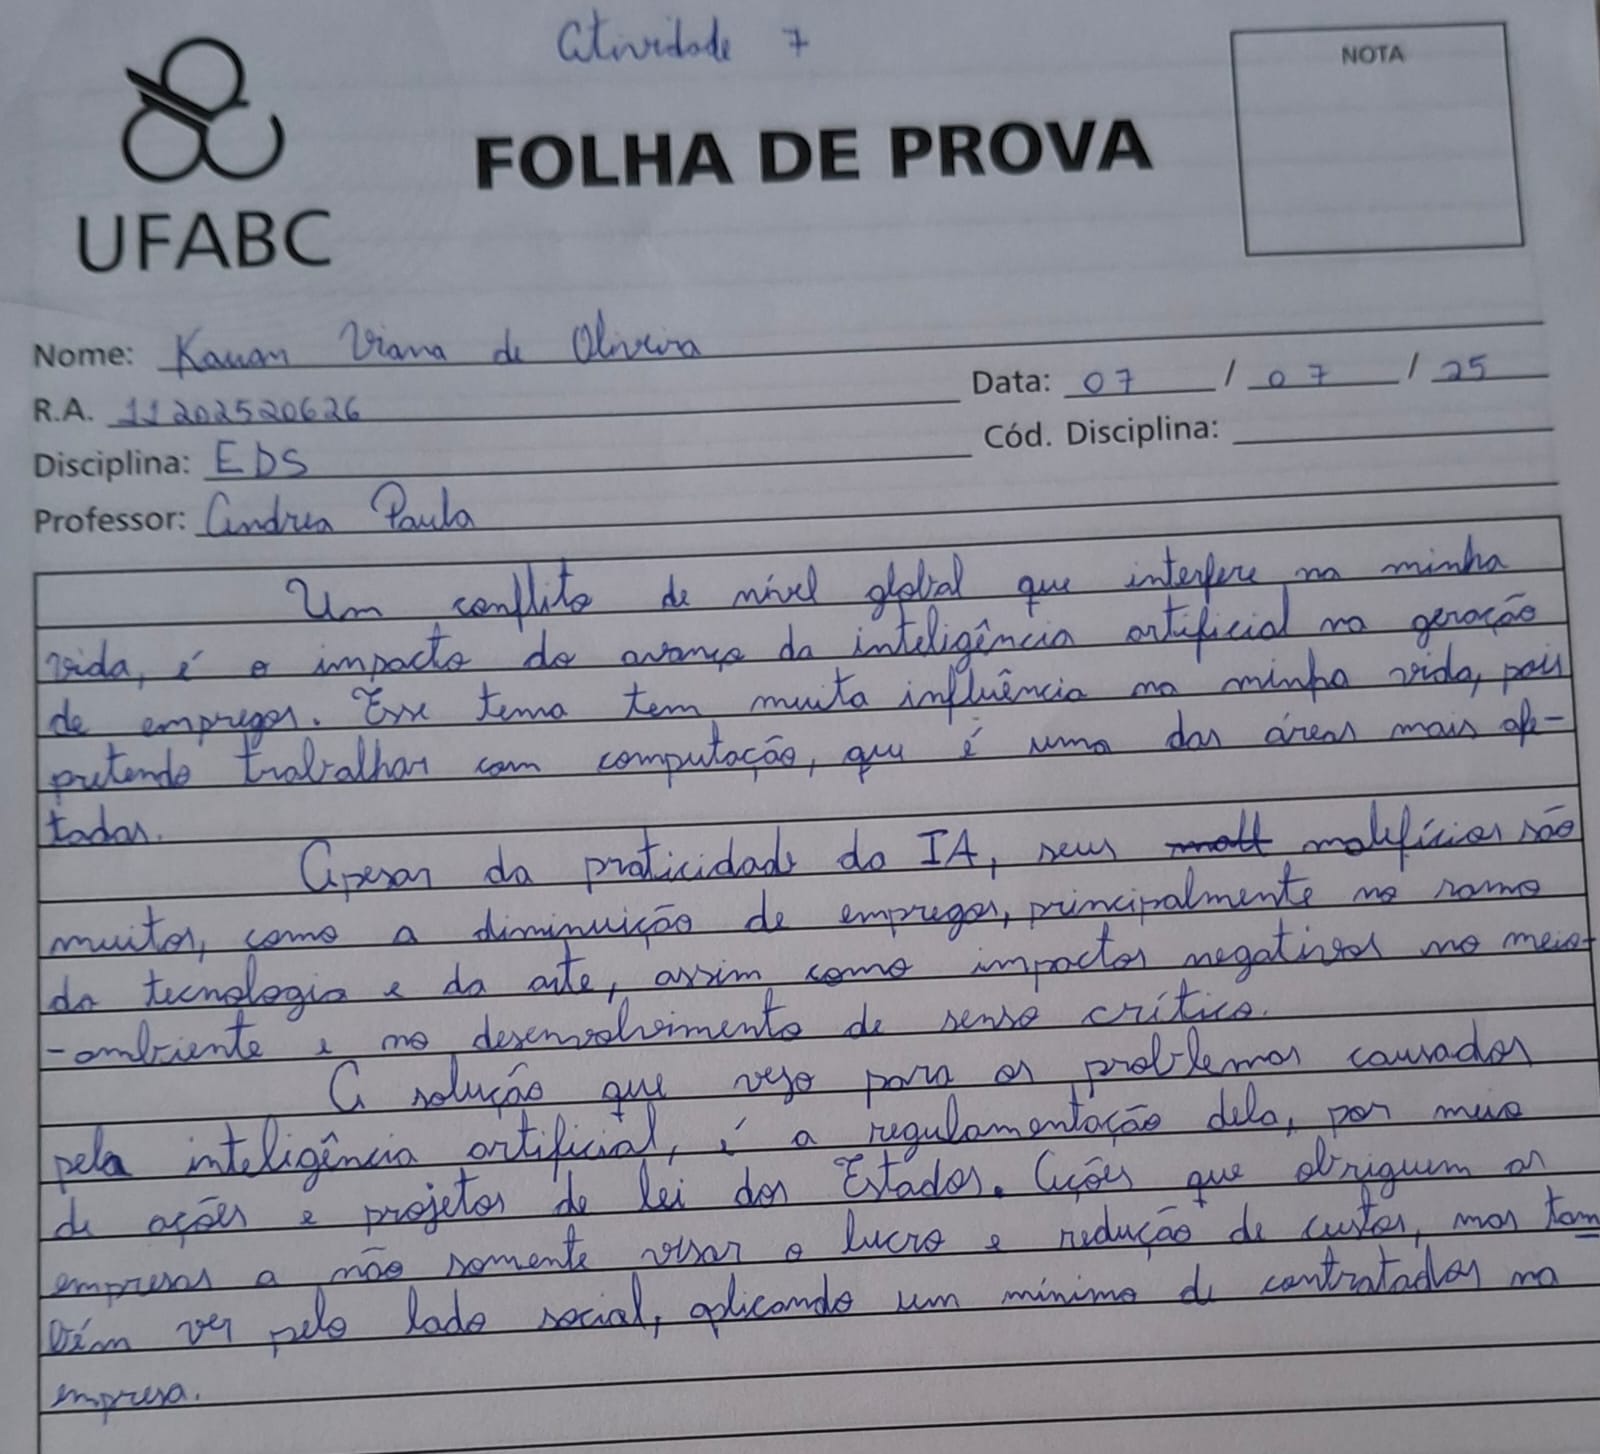 Atividade 7
NOTA
FOLHA DE PROVA
UFABC
Nome: Kauan Viana de Oliveira
R.A. 11202520626
Data: 07 / 07 / 25
Disciplina: EDS
Cód. Disciplina:
Professor: Andrea Paula
Um conflito de nível global que interfere na minha
vida, é o impacto do avanço da inteligência artificial na geração
de empregos. Esse tema tem muita influência na minha vida, pois
pretendo trabalhar com computação, que é uma das áreas mais afe-
tadas.
Apesar da praticidade da IA, seus malefícios são
muitos, como a diminuição de empregos, principalmente no ramo
da tecnologia e da arte, assim como impactos negativos no meio-
-ambiente e no desenvolvimento de senso crítico.
A solução que vejo para os problemas causados
pela inteligência artificial, é a regulamentação dela, por meio
de ações e projetos de lei dos Estados. Ações que obriguem as
empresas a não somente visar o lucro e redução de custos, mas tam
bém ver pelo lado social, aplicando um mínimo de contratados na
empresa.